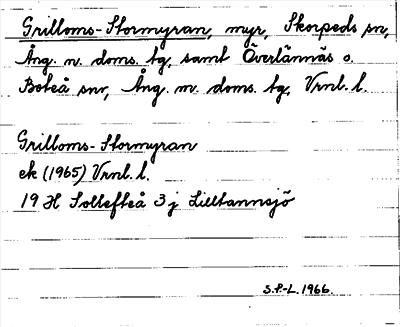 Grilloms-Stormyran, myr, Skorpeds sn,
Ång. n. doms. tg, samt Överlännäs o.
Boteå snr, Ång. m. doms. tg, Vrnl. l.
Grilloms-Stormyran
ek (1965) Vrnl. l.
19 H Sollefteå 3 j Lilltannsjö
S.P-L. 1966.